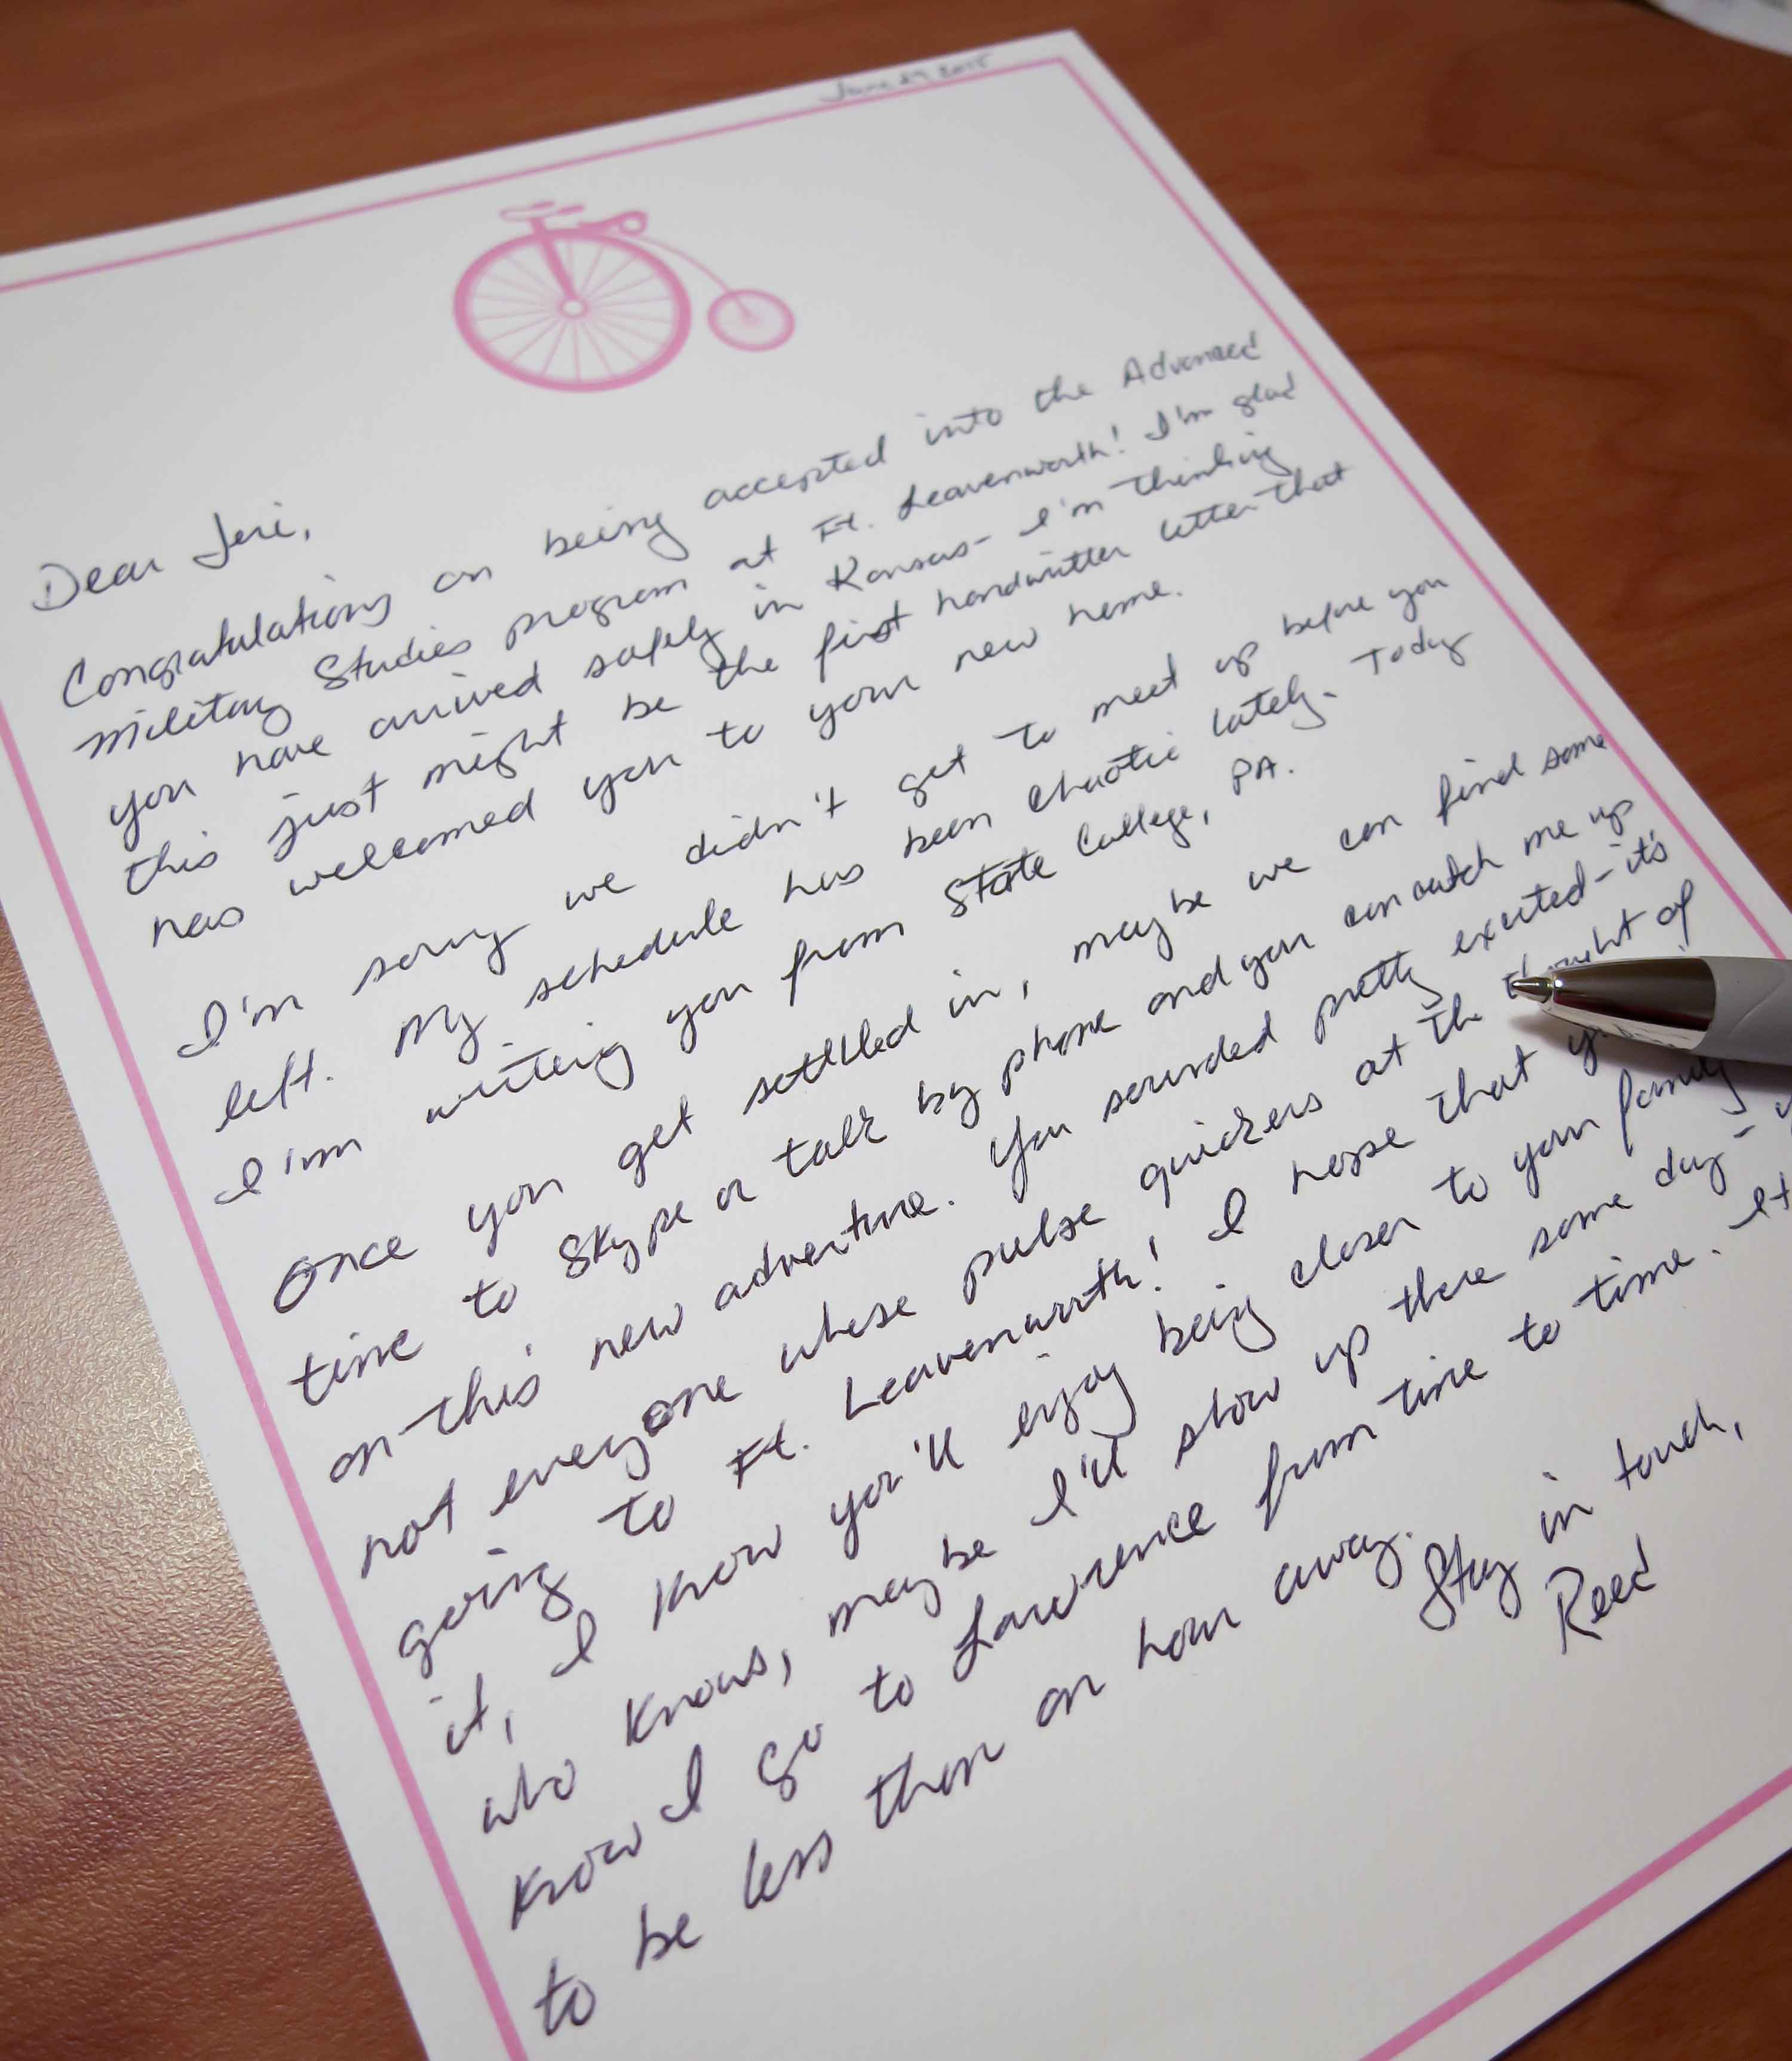 June 29 2015
Dear Jeri,
Congratulations on being accepted into the Advanced
Military Studies program at Ft. Leavenworth! I'm glad
you have arrived safely in Kansas- I'm thinking
this just might be the first handwritten letter that
has welcomed you to your new home.
I'm sorry we didn't get to meet up before you
left. My schedule has been chaotic lately. Today
I'm writing you from State College, PA.
Once you get settled in, maybe we can find some
time to Skype or talk by phone and you can catch me up
on this new adventure. You sounded pretty excited-it's
not everyone whose pulse quickens at the thought of
going to Ft. Leavenworth! I hope that
it, I know you'll enjoy being closer to your family
who knows, maybe I'll show up there some day-
know I go to Lawrence from time to time. It
to be less than an hour away.
Stay in touch,
Reed